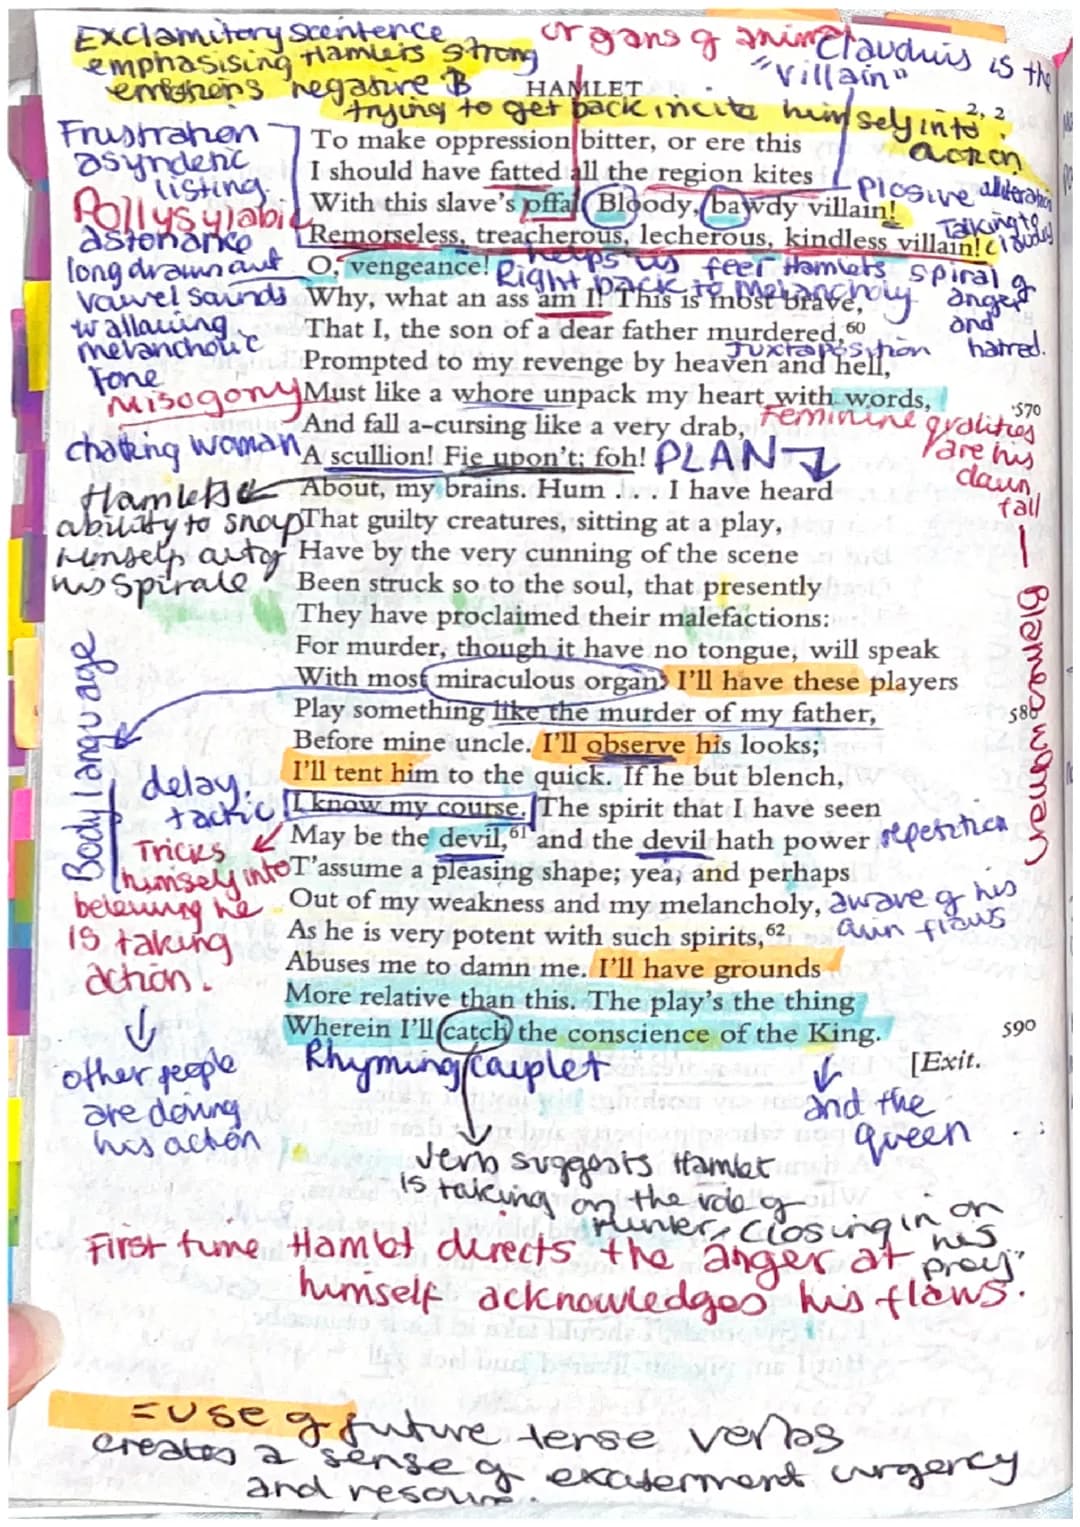 Exclamitory scentence
emphasising Hamlets strong
emotions negative B
organs of animal
Claudius is the
"Villain"
HAMLET
2, 2
trying to get back incite himself into
action.
Frustration
asyndetic
listing.
Pollysylabic
astonance
long drawn out
vowel sounds
wallowing
melancholic
tone
To make oppression bitter, or ere this
I should have fatted all the region kites
With this slave's offal. Bloody, bawdy villain!
Remorseless, treacherous, lecherous, kindless villain!
O, vengeance!
Why, what an ass am I! This is most brave,
That I, the son of a dear father murdered,60
Prompted to my revenge by heaven and hell,
Must like a whore unpack my heart with words,
And fall a-cursing like a very drab,
A scullion! Fie upon't; foh!
Plosive alliteration
Talking to
Claudius
helps us feel Hamlets spiral of
anger
and
hatred.
Right back to Melancholy
Juxtaposition
Misogony
570
Feminine qualities
are his
down
fall
Blames women
PLAN
Hamlets
ability to snap
himself out of
his spirale
About, my brains. Hum . . . I have heard
That guilty creatures, sitting at a play,
Have by the very cunning of the scene
Been struck so to the soul, that presently
They have proclaimed their malefactions:
For murder, though it have no tongue, will speak
With most miraculous organ. I'll have these players
Play something like the murder of my father,
580
Before mine uncle. I'll observe his looks;
I'll tent him to the quick. If he but blench,
I know my course. The spirit that I have seen
May be the devil,61 and the devil hath power
T'assume a pleasing shape; yea, and perhaps
Out of my weakness and my melancholy,
As he is very potent with such spirits,62
Abuses me to damn me. I'll have grounds
More relative than this. The play's the thing
Wherein I'll catch the conscience of the King.
590
[Exit.
Body language
delay
tactic
Tricks
himself into
beleiving he
is taking
action.
other people
are doing
his action
repetition
aware of his
own flaws
Rhyming Couplet
and the
queen
Verb suggests Hamlet
is taking on the role of
hunter, closing in on
his
prey"
First time Hamlet directs the anger at
himself acknowledges his flaws.
= use of future tense verbs
creates a sense of excitement urgency
and